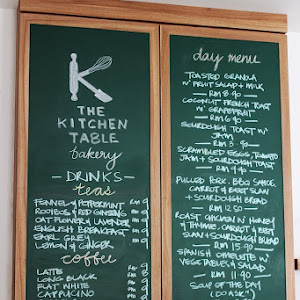 THE
KITCHEN
TABLE
bakery
DRINKS
teas
FENNEL & PEPPERMINT RM 9
ROOIBOS & RED GINSENG RM 9
OAT FLOWER & LAVENDER RM 9
ENGLISH BREAKFAST RM 9
EARL GREY RM 9
LEMON & GINGER RM 9
coffee
LATTE
LONG BLACK
FLAT WHITE
CAPPUCINO
day menu
TOASTED GRANOLA
W/ FRUIT SALAD + MILK
RM 8.90
COCONUT FRENCH TOAST
W/ GRAPEFRUIT
SOURDOUGH TOAST W/
JAM
SCRAMBLED EGGS, TOMATO
JAM + SOURDOUGH TOAST
PULLED PORK, BBQ SAUCE,
CARROT & BEET SLAW
+ SOURDOUGH BREAD
ROAST CHICKEN W/ HONEY
& THYME, CARROT & BEET
SLAW + SOURDOUGH BREAD
RM 15.90
SPANISH OMELETTE W/
VEGETABLES & SALAD
RM 11.90
SOUP OF THE DAY
(DO ASK)